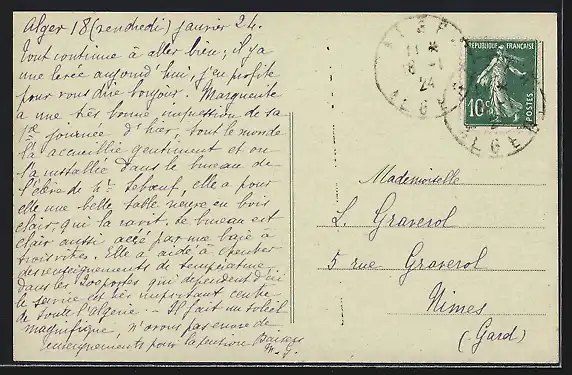 Alger 18 (vendredi) janvier 24.
tout continue à aller bien, il y a
une levée aujourd'hui, j'en profite
pour vous dire bonjour. Marguerite
a une très bonne impression de sa
1re journée d'hier, tout le monde
l'a accueillie gentiment et on
l'a installée dans le bureau de
de Mr Lebœuf, elle a pour
elle une belle table neuve en bois
clair, qui la ravit. Le bureau est
clair aussi par une baie à
trois vitres. Elle a aidé à
des renseignements de température
dans les postes qui dépendent d'ici
le service est très important centre
de toute l'algérie. — Il fait un soleil
magnifique, n'avons pas encore de
renseignements pour la pension Baisers
M. J.
RÉPUBLIQUE FRANÇAISE
10c
POSTES
ALGER
11 *
18 -1
24
ALGER
ALGER
Mademoiselle
L. Graverol
5 rue Graverol
Nimes
(Gard)